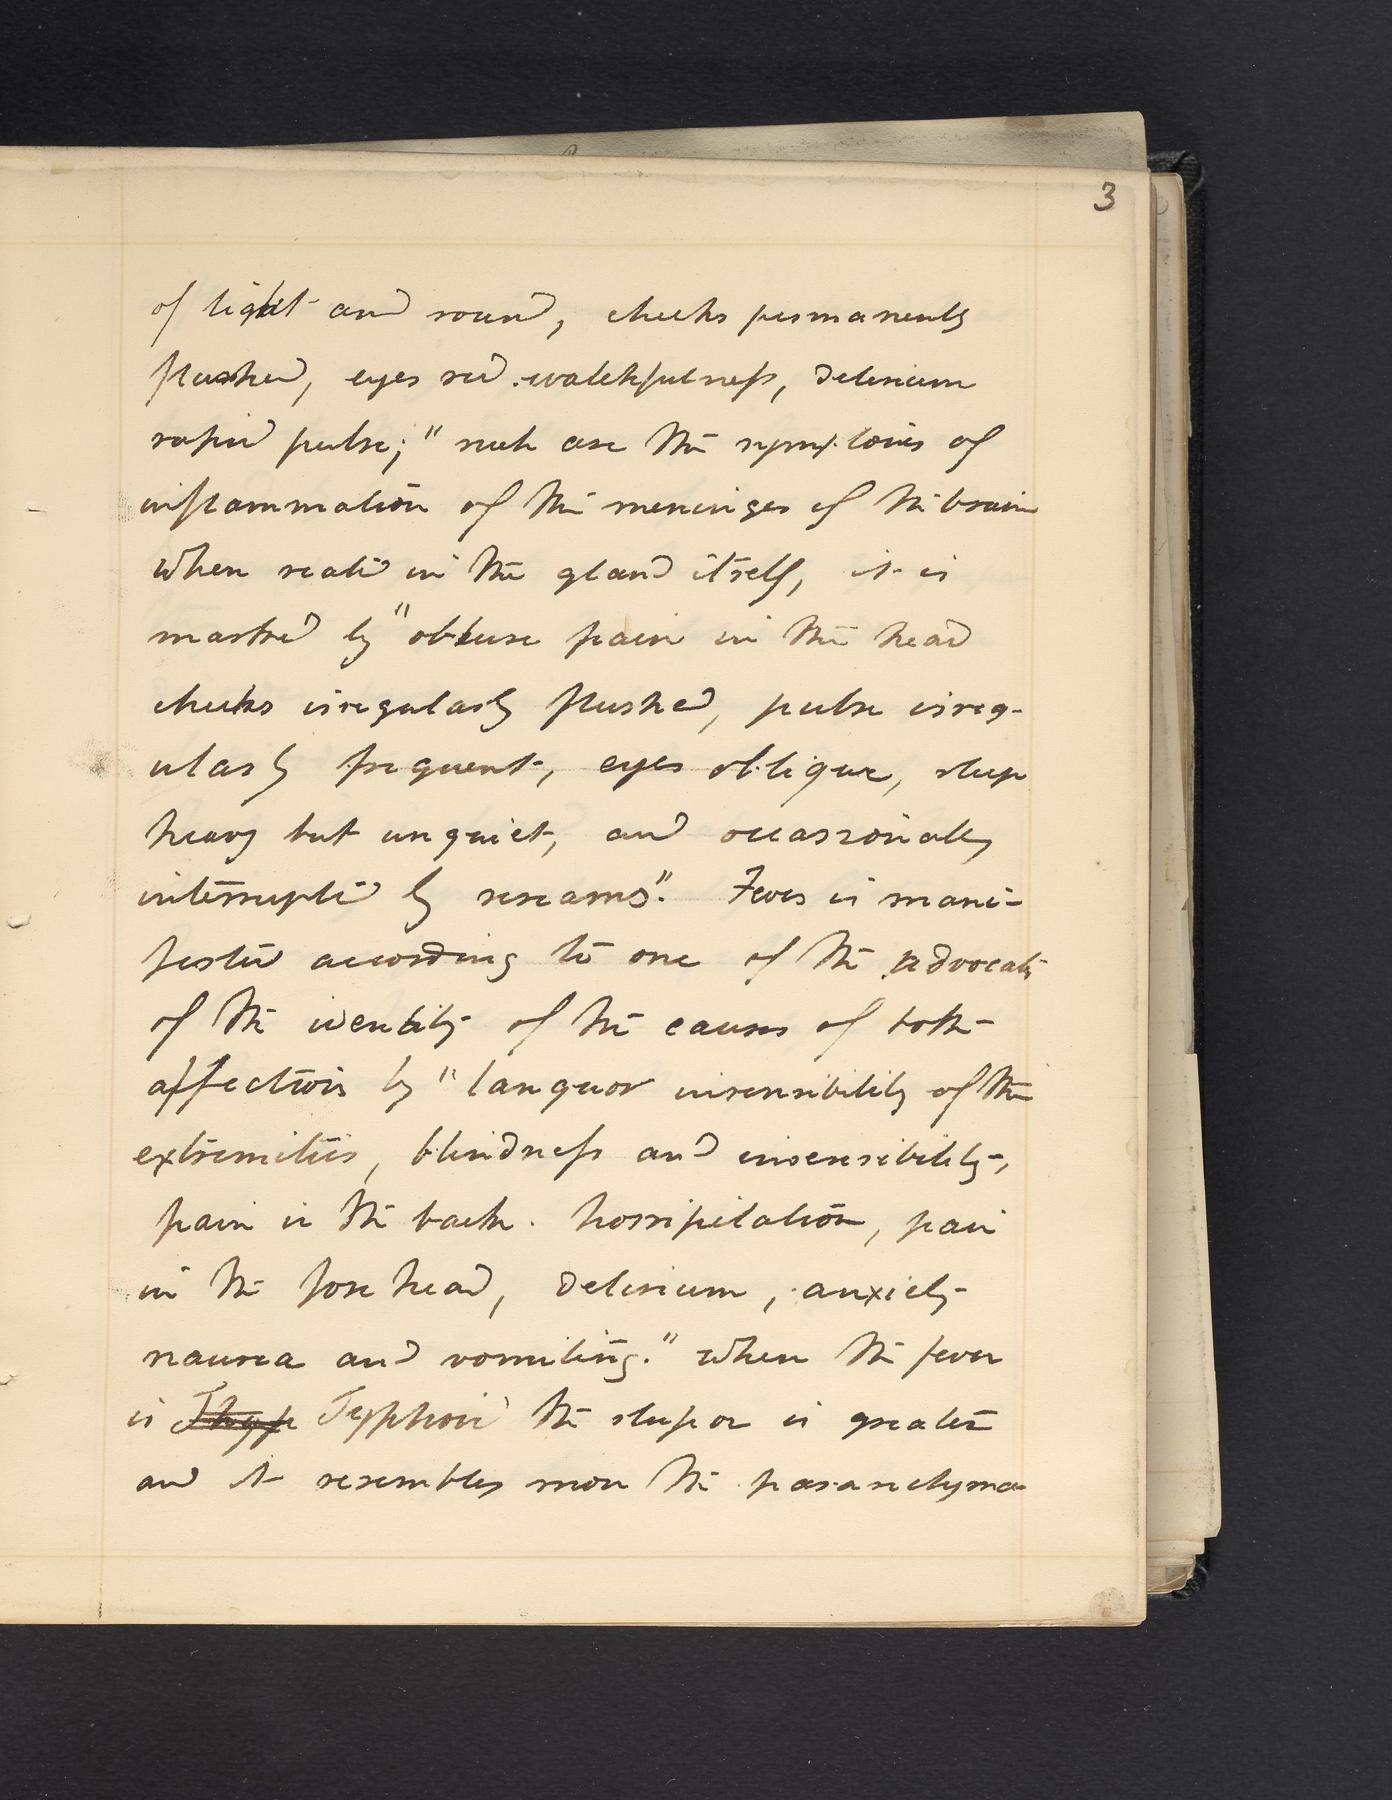 3
of light and sound, cheeks permanently
flushed, eyes red. watchfulness, delirium
rapid pulse;" such are the symptoms of
inflammation of the meninges of the brain
when seated in the gland itself, it is
marked by "obtuse pain in the head
cheeks irregularly flushed, pulse irreg-
ularly frequent, eyes oblique, sleep
heavy but unquiet, and occassionally
interrupted by screams". Fever is mani-
fested according to one of the advocates
of the identity of the causes of both
affections by "languor insensibility of the
extremities, blindness and insensibility,
pain in the back. horripilation, pain
in the forehead, delirium, anxiety
nausea and vomiting." when the fever
is Thyp Typhoid the stupor is greater
and it resembles more the parenchyma